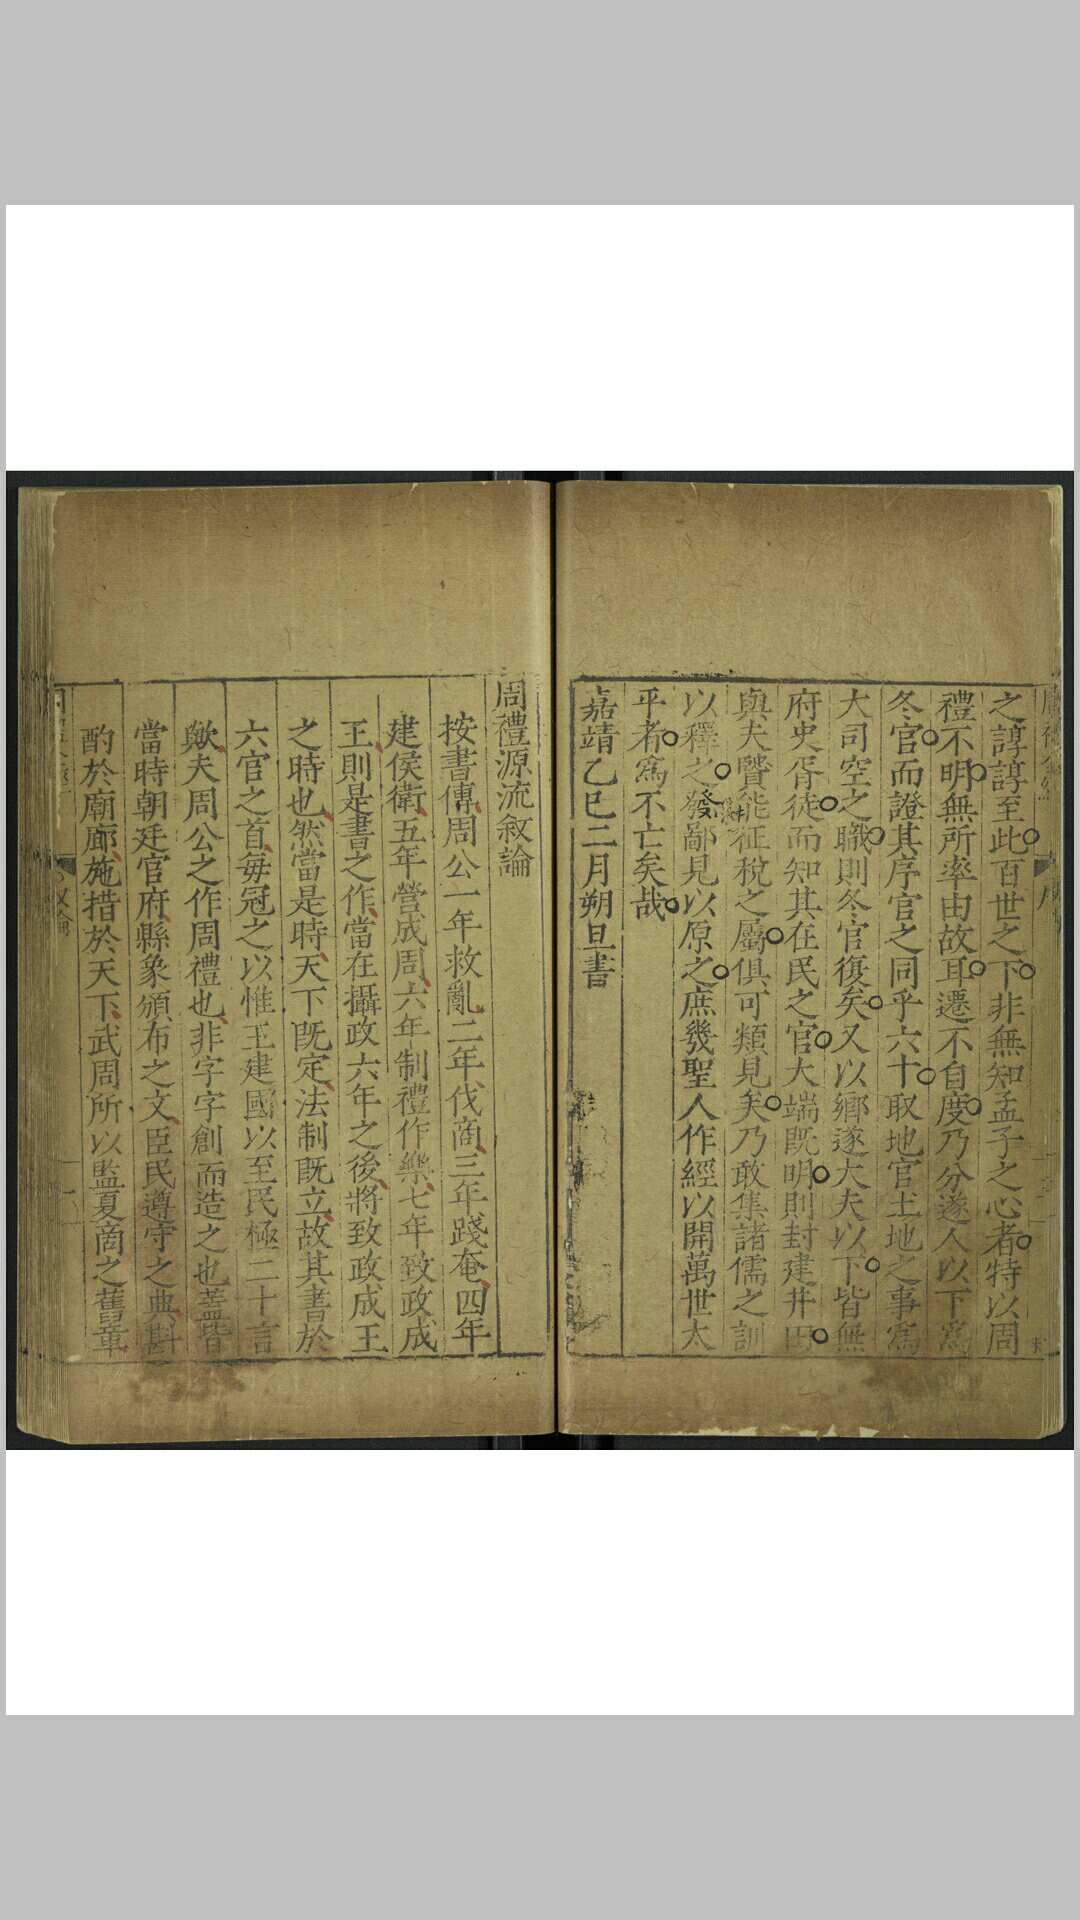 之諄諄至此百世之下非無知孟子之心者特以周
禮不明無所率由故耳遷不自度乃分遂人以下爲
冬官而證其序官之同乎六十取地官土地之事爲
大司空之職則冬官復矣又以鄉遂大夫以下皆無
府史胥徒而知其在民之官大端既明則封建井田
與夫賢能征稅之屬俱可類見矣乃敢集諸儒之訓
以釋之發鄙見以原之庶幾聖人作經以開萬世太
平者爲不亡矣哉
嘉靖乙巳二月朔旦書
周禮源流敘論
按書傳周公一年救亂二年伐商三年踐奄四年
建侯衛五年營成周六年制禮作樂七年致政成
王則是書之作當在攝政六年之後將致政成王
之時也然當是時天下既定法制既立故其書於
六官之首每冠之以惟王建國以至民極二十言
歟夫周公之作周禮也非字字創而造之也蓋皆
當時朝廷官府縣象頒布之文臣民遵守之典斟
酌於廟廊施措於天下武周所以監夏商之舊章
敘論